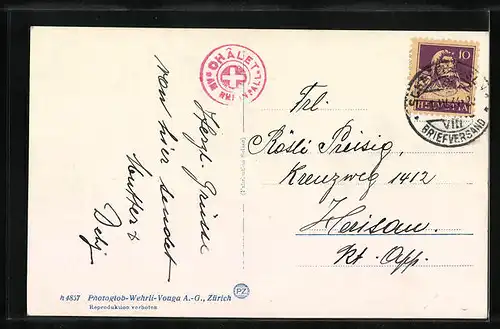 Herzl. Grüsse
von hier sendet
Mutter &
CHÂLET
AM RHEINFALL
10
HELVETIA
VIII
BRIEFVERSAND
Frl.
Rösli Preisig,
Kreuzweg 1412
Herisau.
Kt. App.
h 4857 Photoglob-Wehrli-Vouga A.-G., Zürich
Reproduktion verboten
PZ